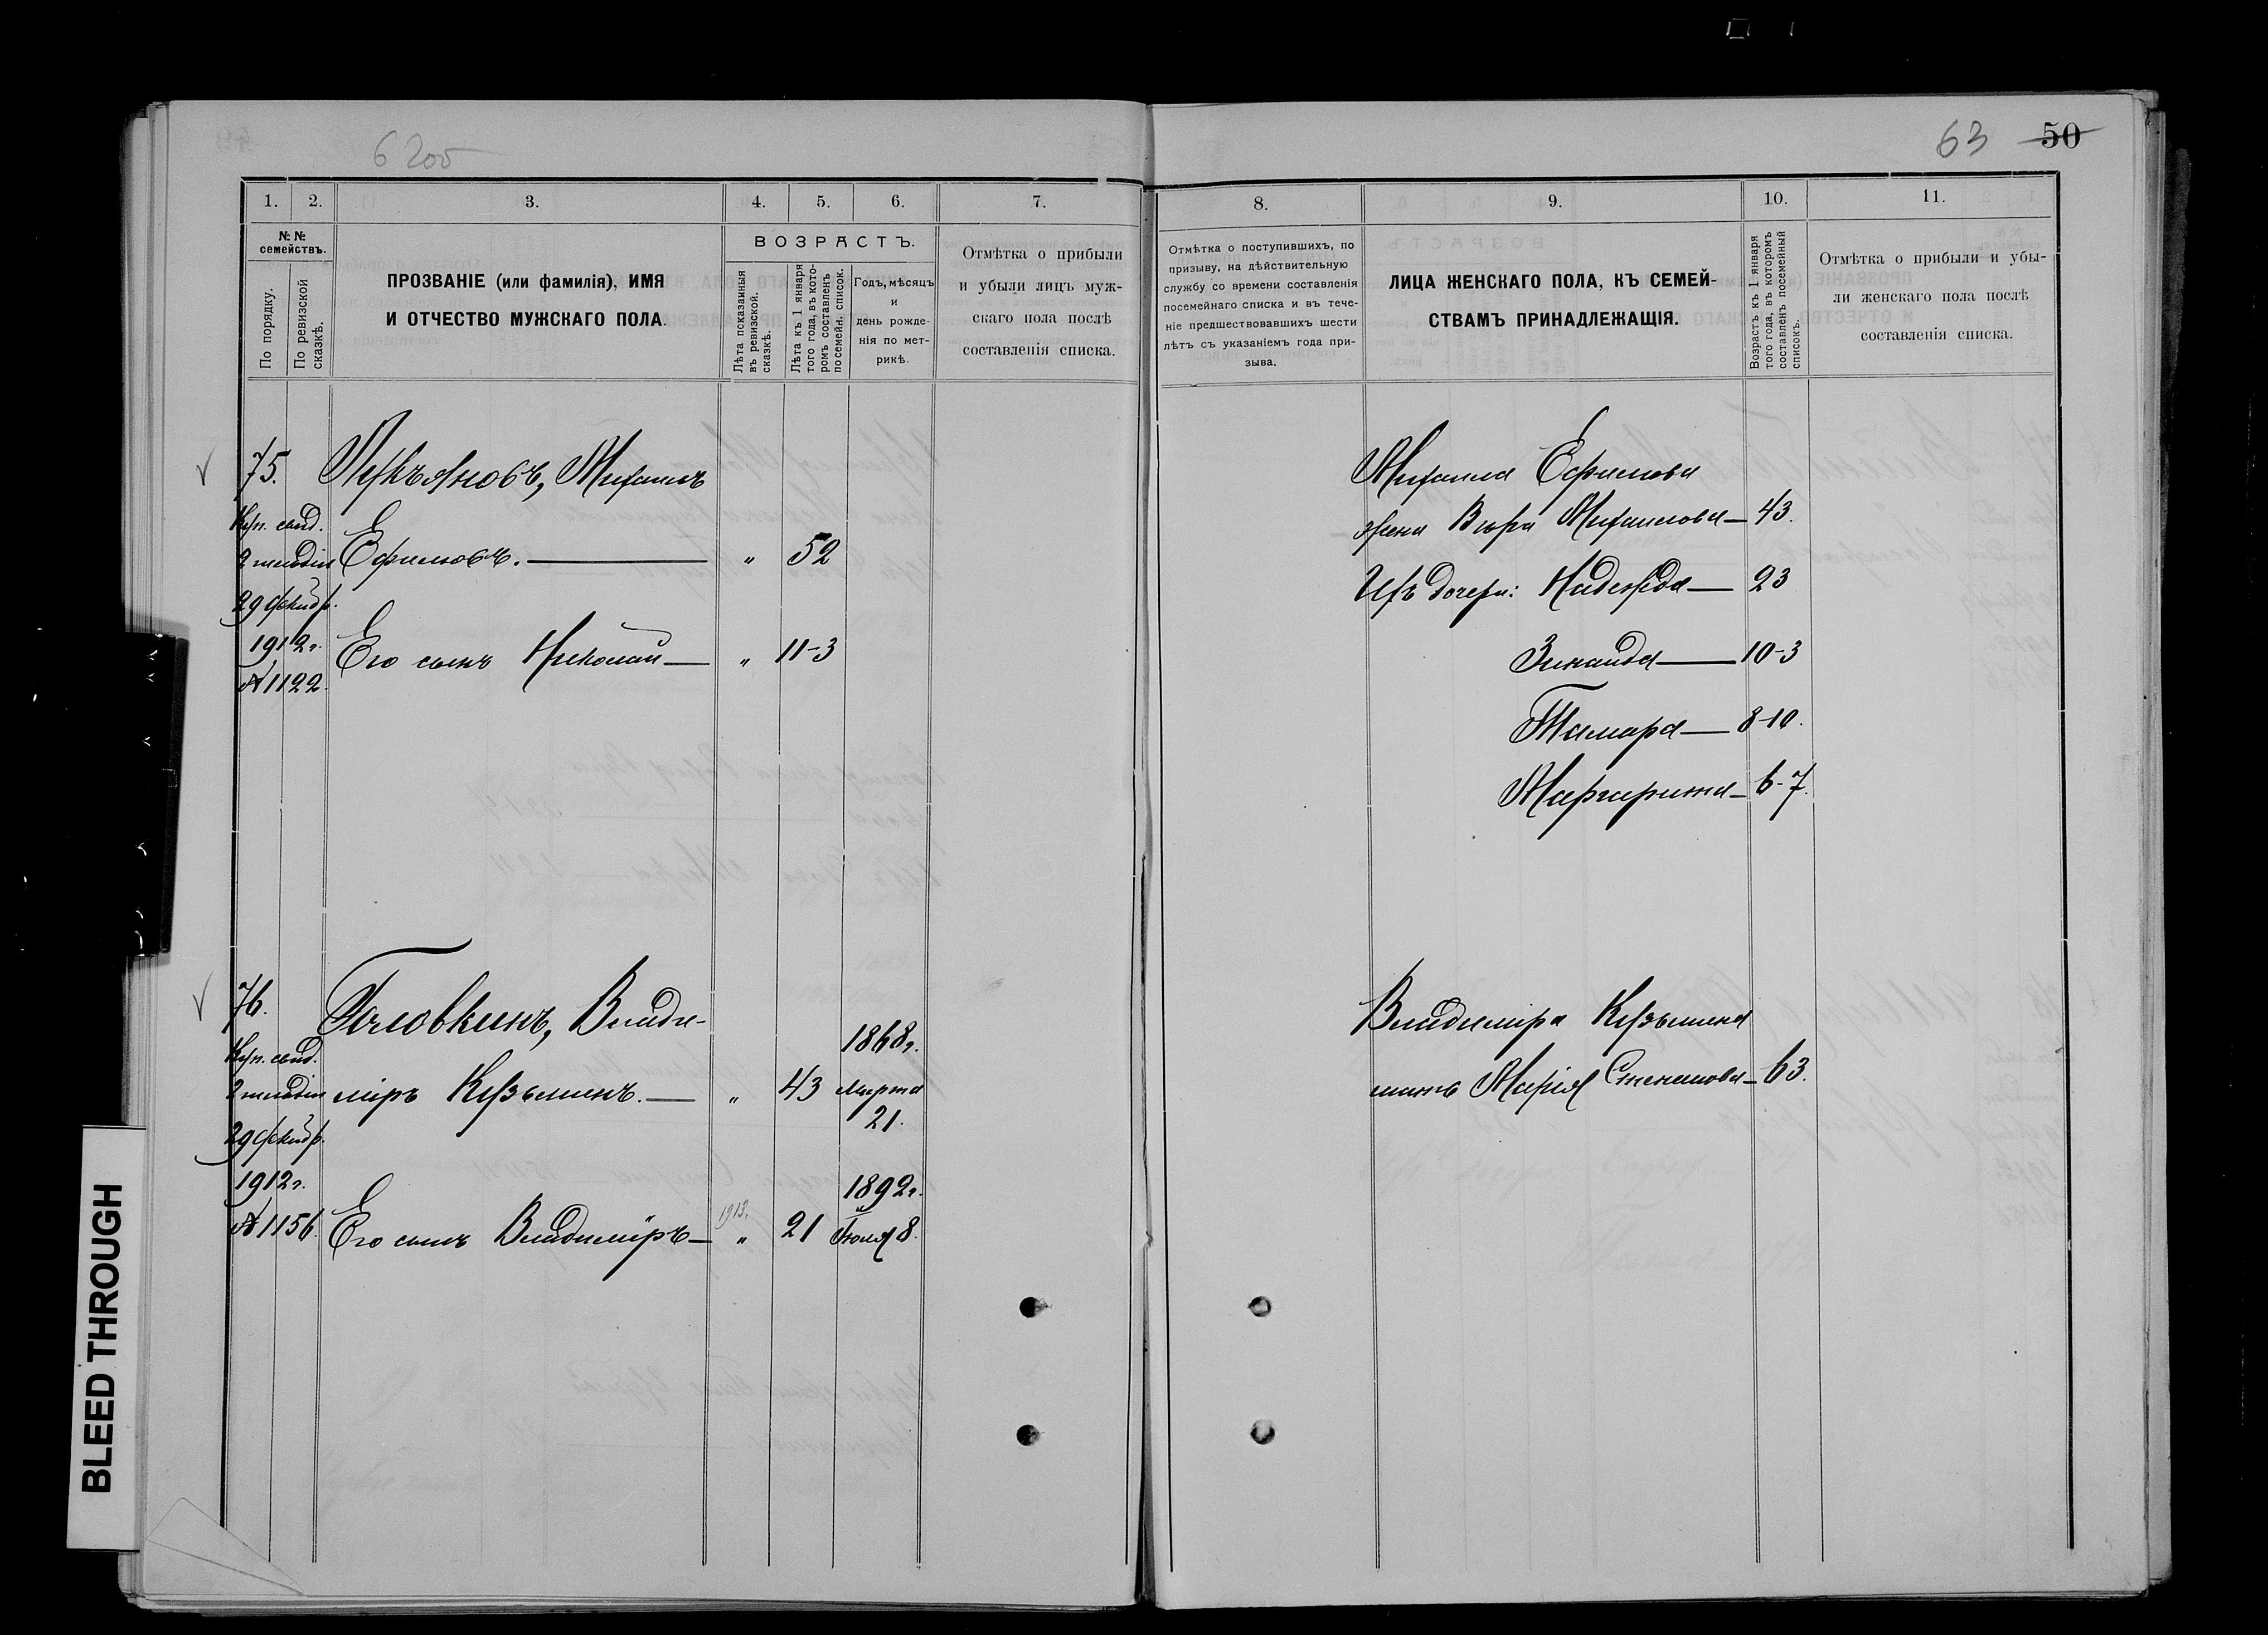 6 200
63 50
1. 2. 3. 4. 5. 6. 7.
№ №
семействъ.
По порядку.
По ревизской
сказкѣ.
ПРОЗВАНІЕ (или фамилія), ИМЯ
И ОТЧЕСТВО МУЖСКАГО ПОЛА.
ВОЗРАСТЪ.
Лѣта показанныя
въ ревизской
сказкѣ.
Лѣта къ 1 января
того года, въ кото-
ромъ составленъ
посемейн. списокъ.
Годъ, мѣсяцъ
и
день рожде-
нія по мет-
рикѣ.
Отмѣтка о прибыли
и убыли лицъ муж-
скаго пола послѣ
составленія списка.
75.
Куп. свид.
2 гильдіи
29 декабр.
1912 г.
№ 1122.
Лукьяновъ, Михаилъ
Ефимовъ. — " 52
Его сынъ Николай — " 11-3
76.
Куп. свид.
2 гильдіи
29 декабр.
1912 г.
№ 1156.
Головкинъ, Влади-
міръ Кузьминъ. — " 43
1868 г.
Марта
21.
1913.
Его сынъ Владиміръ — " 21
1892 г.
Іюля 8.
8. 9. 10. 11.
Отмѣтка о поступившихъ, по
призыву, на дѣйствительную
службу со времени составленія
посемейнаго списка и въ тече-
ніе предшествовавшихъ шести
лѣтъ съ указаніемъ года при-
зыва.
ЛИЦА ЖЕНСКАГО ПОЛА, КЪ СЕМЕЙ-
СТВАМЪ ПРИНАДЛЕЖАЩІЯ.
Возрастъ къ 1 января
того года, въ которомъ
составленъ посемейный
списокъ.
Отмѣтка о прибыли и убы-
ли женскаго пола послѣ
составленія списка.
Михаила Ефимова
жена Вѣра Михаилова — 43.
Ихъ дочери: Надежда — 23
Зинаида — 10-3
Тамара — 8-10.
Маргарита — 6-7.
Владиміра Кузьмина
мать Марія Степанова — 63.
BLEED THROUGH